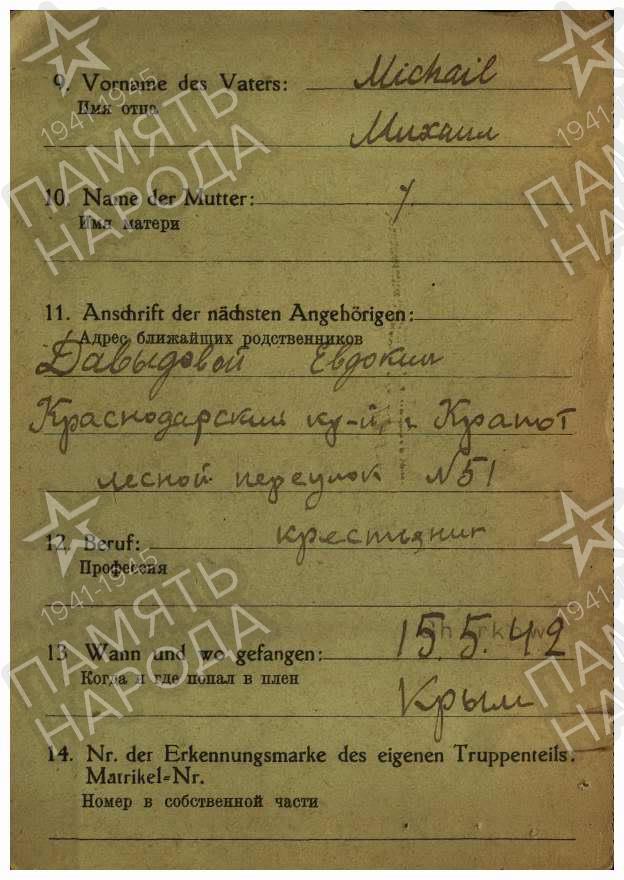 9. Vorname des Vaters: Michail
Имя отца
Михаил
10. Name der Mutter:
Имя матери
11. Anschrift der nächsten Angehörigen:
Адрес ближайщих родственников
Давыдовой Евдокии
Краснодарский г Крапот
лесной переулок №51
12. Beruf: крестьянин
Профессия
13 Wann und wo gefangen: 15.5.42
Когда и где попал в плен
Крым
14. Nr. der Erkennungsmarke des eigenen Truppenteils.
Matrikel-Nr.
Номер в собственной части
1941-1945
ПАМЯТЬ
НАРОДА
1941-1945
ПАМЯТЬ
НАРОДА
1941-1945
ПАМЯТЬ
НАРОДА
1941-1945
ПАМЯТЬ
НАРОДА